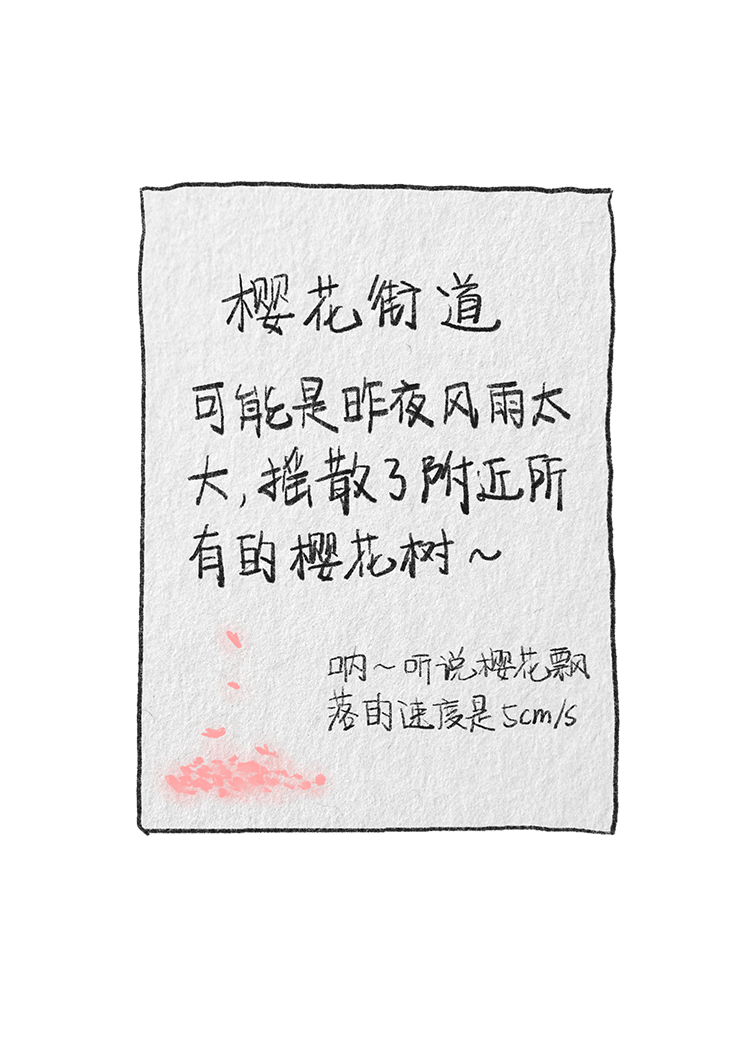 樱花街道
可能是昨夜风雨太
大,摇散了附近所
有的樱花树~
呐~听说樱花飘
落的速度是5cm/s